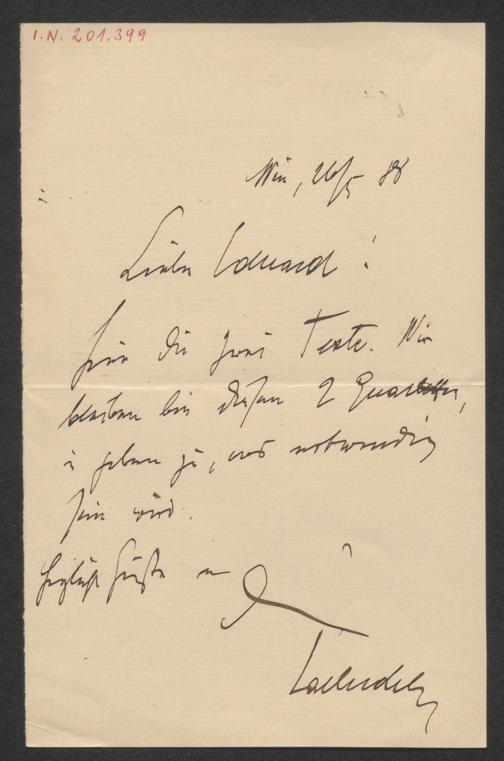 I.N. 201.399
Wien, 26/5 88
Lieber Eduard!
hier die zwei Texte. Wir
bleiben bei diesen 2
i geben zu, was notwendig
sein wird.
Herzliche Grüße